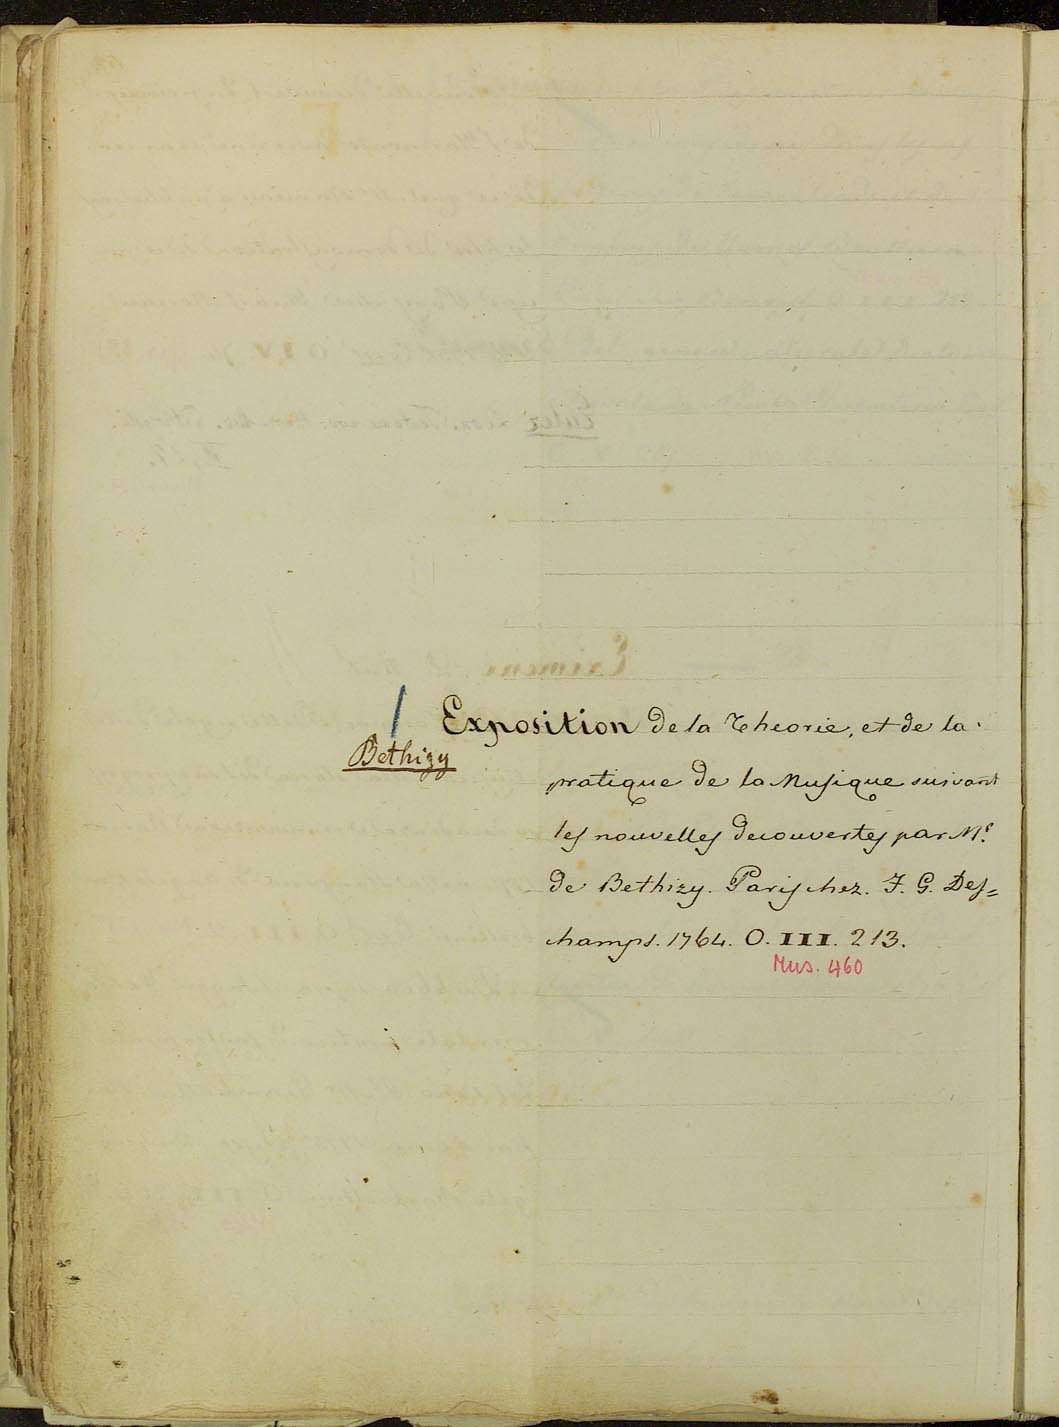 Exposition de la Theorie, et de la
Bethizy
pratique de la Musique suivant
les nouvelles decouvertes par Mr.
de Bethizy. Paris chez. F. G. Des=
champs. 1764. O. III. 213.
Mus. 460